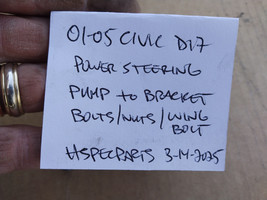 01-05 CIVIC D17
POWER STEERING
PUMP to BRACKET
BOLTS/NUTS/WING
BOLT
HSPECPARTS 3-14-2025